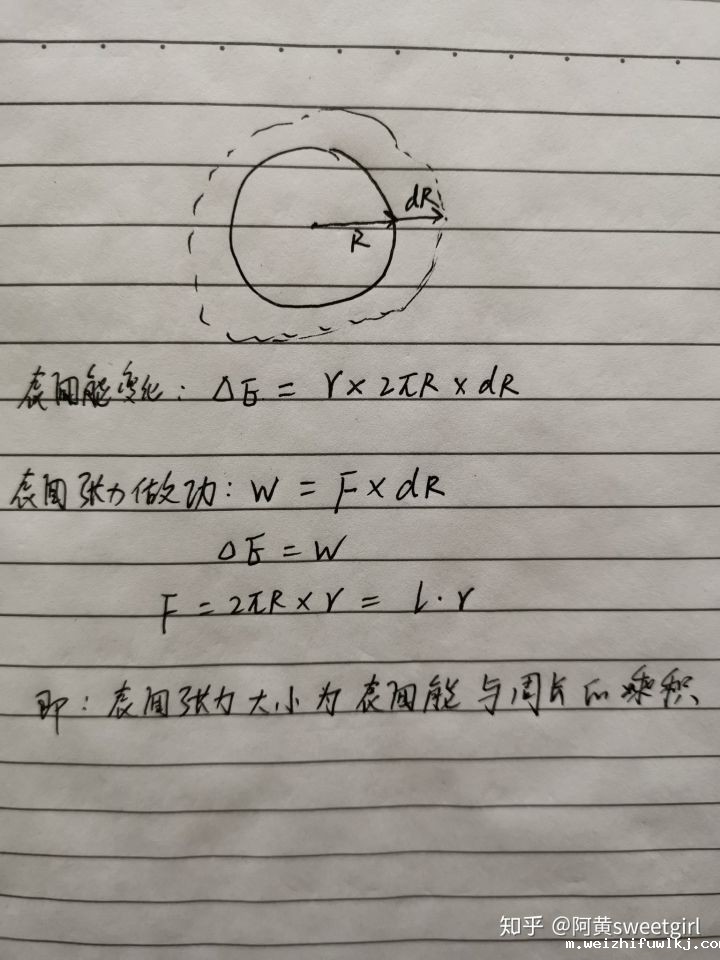 dR
R
表面能变化: ΔE = γ × 2πR × dR
表面张力做功: W = F × dR
ΔE = W
F = 2πR × γ = l · γ
即: 表面张力大小为表面能与周长的乘积
知乎 @阿黄sweetgirl
m.weizhifuwlkj.com